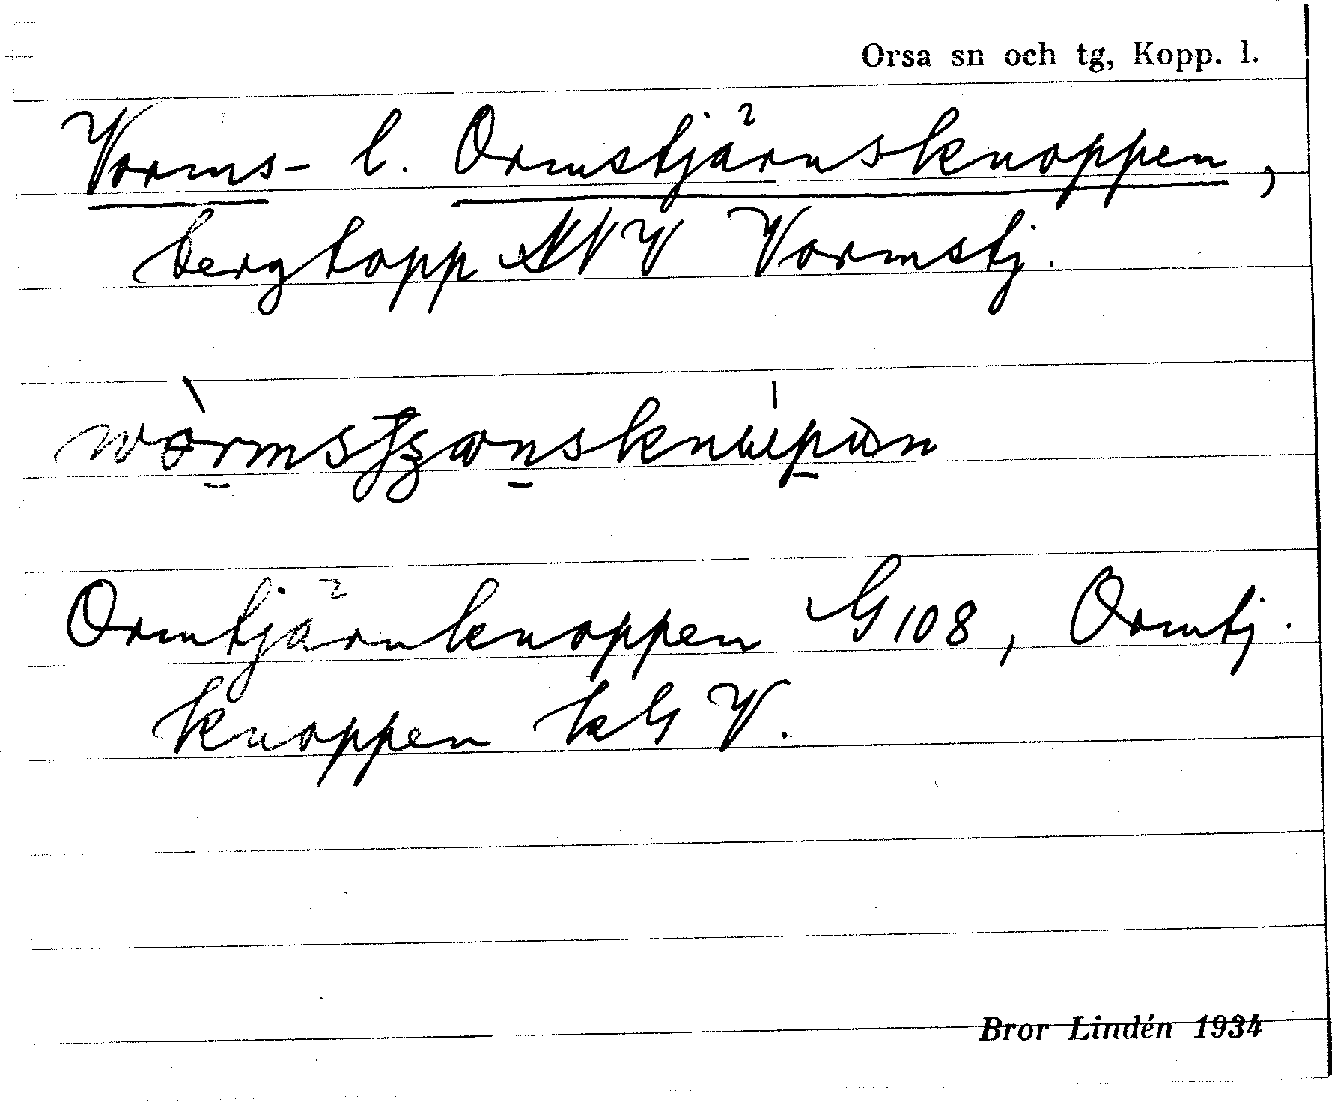 Orsa sn och tg, Kopp. l.
Vorms- l. Ormstjärnsknoppen,
bergtopp NV Vormstj.
Ormtjärnknoppen G108, Ormtj.
knoppen kG V.
Bror Lindén 1934